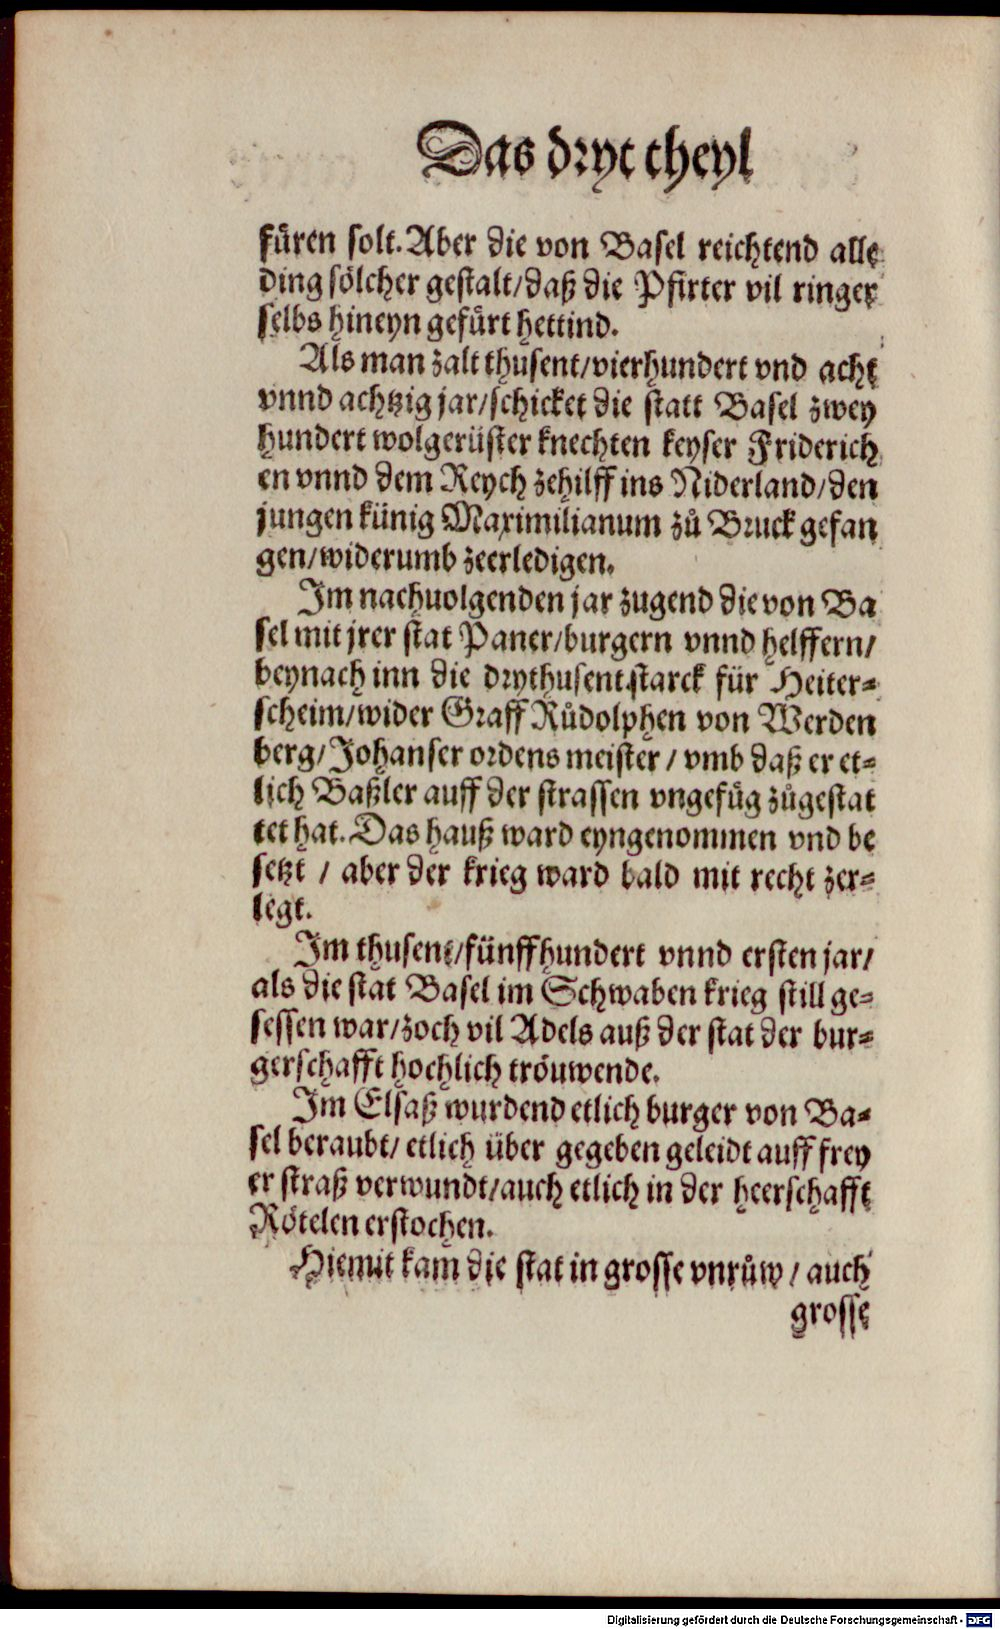 Das dryt theyl
fuͤren solt. Aber die von Basel reichtend alle
ding soͤlcher gestalt/ daß die Pfirter vil ringer
selbs hineyn gefuͤrt hettind.
Als man zalt thusent/ vierhundert vnd acht
vnnd achtzig jar/ schicket die statt Basel zwey
hundert wolgerüster knechten keyser Friderich
en vnnd dem Reych zehilff ins Niderland/ den
jungen künig Maximilianum zuͦ Bruck gefan
gen/ widerumb zeerledigen.
Im nachuolgenden jar zugend die von Ba
sel mit jrer stat Paner/ burgern vnnd helffern/
beynach inn die drythusent starck für Heiter⸗
scheim/ wider Graff Ruͦdolphen von Werden
berg/ Johanser ordens meister / vmb daß er et⸗
lich Baßler auff der strassen vngefuͤg zuͦgestat
tet hat. Das hauß ward eyngenommen vnd be
setzt / aber der krieg ward bald mit recht zer⸗
legt.
Im thusent/ fünffhundert vnnd ersten jar/
als die stat Basel im Schwaben krieg still ge⸗
sessen war/ zoch vil Adels auß der stat der bur⸗
gerschafft hochlich troͤuwende.
Im Elsaß wurdend etlich burger von Ba⸗
sel beraubt/ etlich über gegeben geleidt auff frey
er straß verwundt/ auch etlich in der heerschafft
Roͤtelen erstochen.
Hiemit kam die stat in grosse vnruͤw / auch
grosse
Digitalisierung gefördert durch die Deutsche Forschungsgemeinschaft - DFG